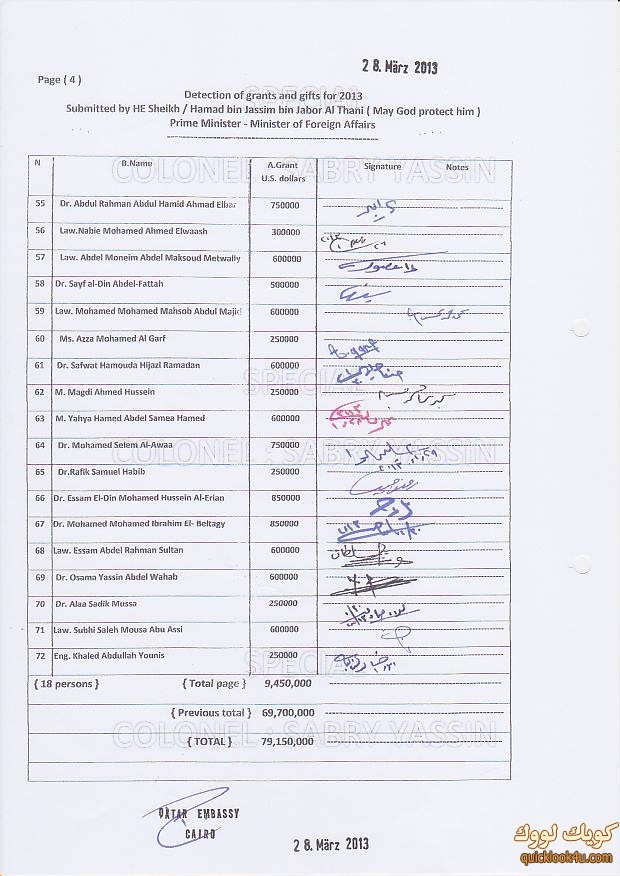 28. März 2013
Page ( 4 )
Detection of grants and gifts for 2013
Submitted by HE Sheikh / Hamad bin Jassim bin Jabor Al Thani ( May God protect him )
Prime Minister - Minister of Foreign Affairs
SPECIAL
COLONEL : SABRY YASSIN
N B.Name A.Grant U.S. dollars Signature Notes
55 Dr. Abdul Rahman Abdul Hamid Ahmad Elbar 750000
56 Law.Nabie Mohamed Ahmed Elwaash 300000
57 Law. Abdel Moneim Abdel Maksoud Metwally 600000
58 Dr. Sayf al-Din Abdel-Fattah 500000
59 Law. Mohamed Mohamed Mahsob Abdul Majid 600000
60 Ms. Azza Mohamed Al Garf 250000 A.garf
61 Dr. Safwat Hamouda Hijazi Ramadan 600000
SPECIAL
62 M. Magdi Ahmed Hussein 250000
63 M. Yahya Hamed Abdel Samea Hamed 600000
64 Dr. Mohamed Selem Al-Awaa 750000
COLONEL : SABRY YASSIN
65 Dr.Rafik Samuel Habib 250000
66 Dr. Essam El-Din Mohamed Hussein Al-Erian 850000
67 Dr. Mohamed Mohamed Ibrahim El- Beltagy 850000
68 Law. Essam Abdel Rahman Sultan 600000
69 Dr. Osama Yassin Abdel Wahab 600000
70 Dr. Alaa Sadik Mussa 250000
71 Law. Subhi Saleh Mousa Abu Assi 600000
72 Eng. Khaled Abdullah Younis 250000
SPECIAL
{ 18 persons } { Total page } 9,450,000
{ Previous total } 69,700,000
COLONEL : SABRY YASSIN
{ TOTAL } 79,150,000
QATAR EMBASSY
CAIRO
28. März 2013
كويك لووك
quicklook4u.com